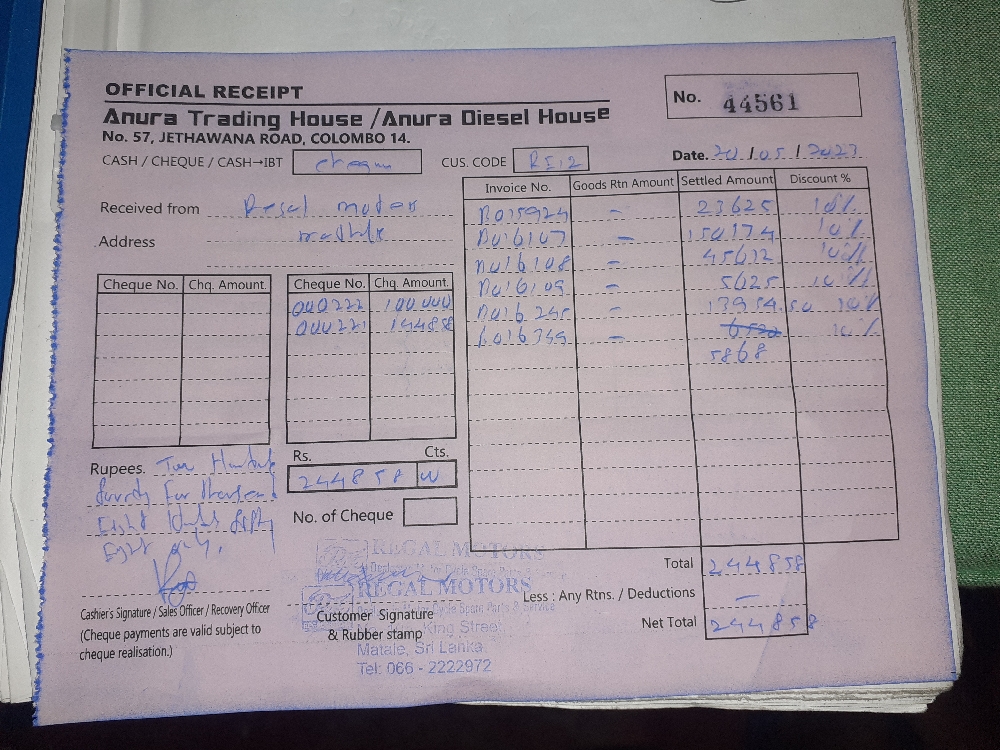 OFFICIAL RECEIPT
No. 44561
Anura Trading House / Anura Diesel House
No. 57, JETHAWANA ROAD, COLOMBO 14.
CASH / CHEQUE / CASH→IBT cheque CUS. CODE Date. /05/2023
Received from motors
Address
Invoice No. Goods Rtn Amount Settled Amount Discount %
- 23625 10%
- 150174 10%
- 45612 10%
- 5625 10%
- 13954.50 10%
- 10%
5868
Cheque No. Chq. Amount. Cheque No. Chq. Amount.
000222 100000
000221 144858
Rs. Cts.
244858
Rupees. Two Hundred
Fourty Four thousand
Eight Hundred fifty
Eight only.
No. of Cheque
REGAL MOTORS
REGAL MOTORS
Motor Cycle Spare Parts & Service
King Street
Matale, Sri Lanka
Tel: 066 - 2222972
Total 244858
Less : Any Rtns. / Deductions -
Net Total 244858
Cashier's Signature / Sales Officer / Recovery Officer
(Cheque payments are valid subject to
cheque realisation.)
Customer Signature
& Rubber stamp